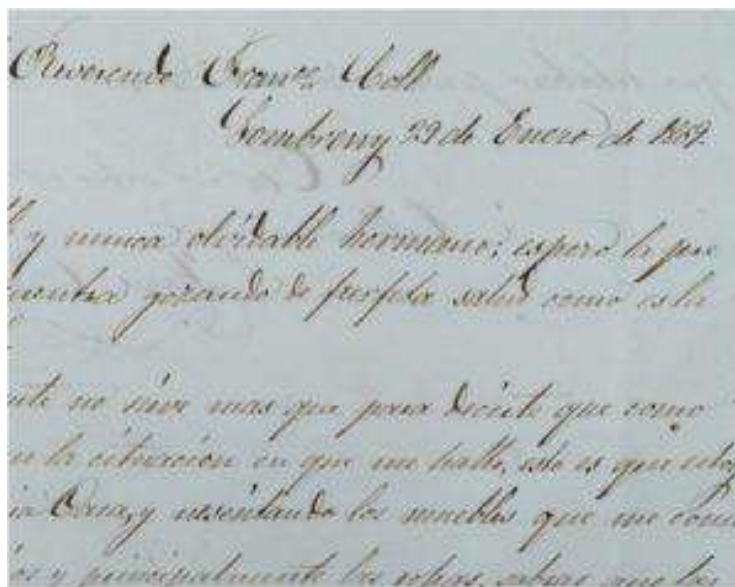 Reverendo Franco. Coll
Gombreny 29 de Enero de 1869.
y nunca olvidable hermano; espero la pre
cuentra gozando de perfecta salud como es la
ente no sirve mas que para decirte que como
en la cituacion en que me hallo, esto es que estoy
ia Casa, y los muebles que me
os y principalmente las ropas,